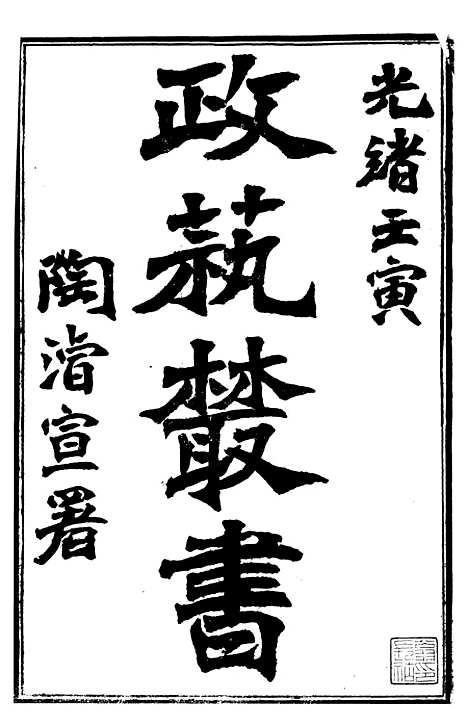 光緒壬寅
政蓺叢書
陶濬宣署